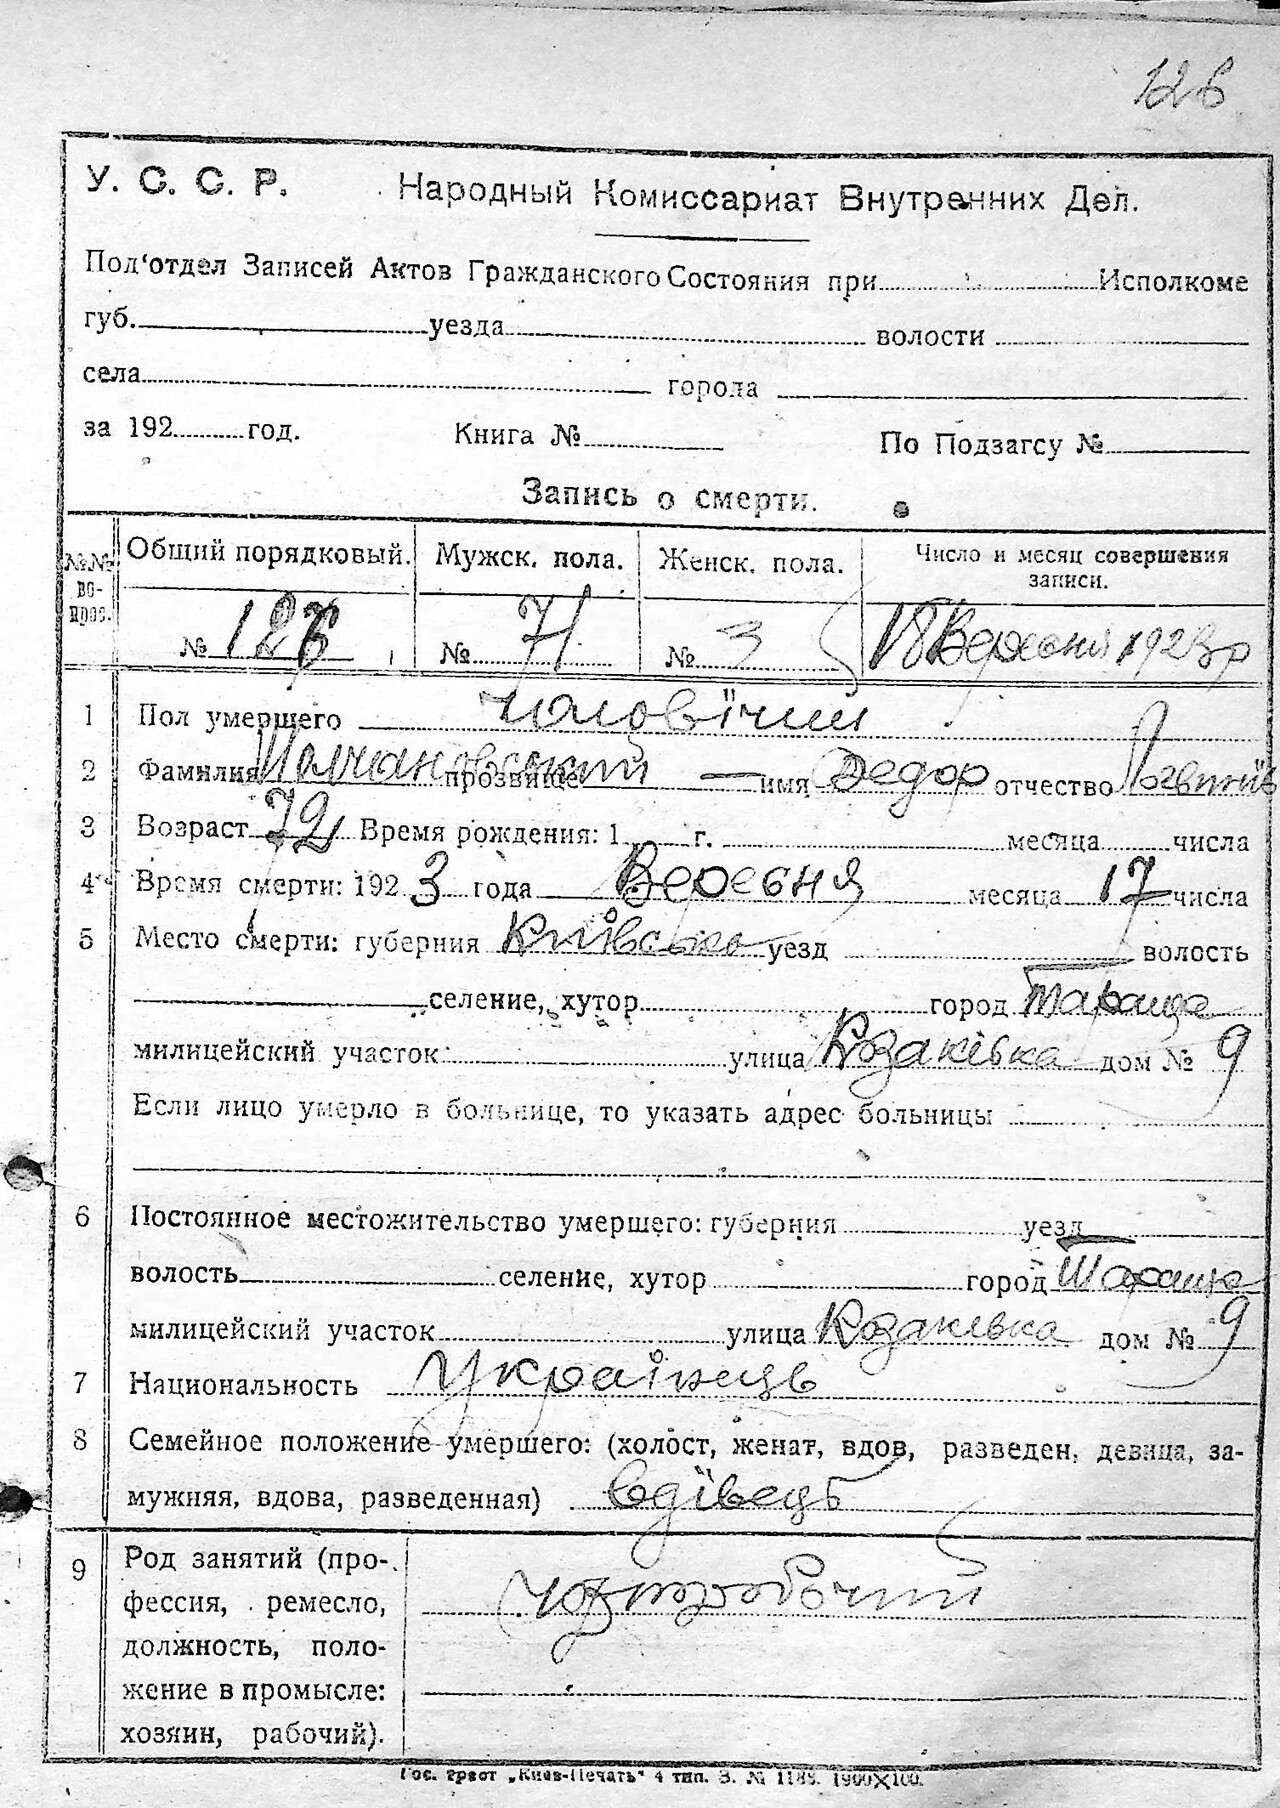 126
У. С. С. Р. Народный Комиссариат Внутренних Дел.
Под'отдел Записей Актов Гражданского Состояния при Исполкоме
губ. уезда волости
села города
за 192 год. Книга № По Подзагсу №
Запись о смерти.
№№ вопрос. Общий порядковый. Мужск. пола. Женск. пола. Число и месяц совершения записи.
№ 126 № 71 № 3 18 Вересня 1923 р
1 Пол умершего чоловічий
2 Фамилия прозвище — имя Федор отчество
3 Возраст 72 Время рождения: 1 г. месяца числа
4 Время смерти: 1923 года Вересня месяца 17 числа
5 Место смерти: губерния Київська уезд волость
селение, хутор город Тараща
милицейский участок улица Козаківка дом № 9
Если лицо умерло в больнице, то указать адрес больницы
6 Постоянное местожительство умершего: губерния уезд
волость селение, хутор город Тараща
милицейский участок улица Козаківка дом № 9
7 Национальность Українець
8 Семейное положение умершего: (холост, женат, вдов, разведен, девица, за-
мужняя, вдова, разведенная) вдівець
9 Род занятий (про-
фессия, ремесло, чорноробочий
должность, поло-
жение в промысле:
хозяин, рабочий).
Гос. трест „Киев-Печать" 4 тип. З. № 1188. 1900×100.